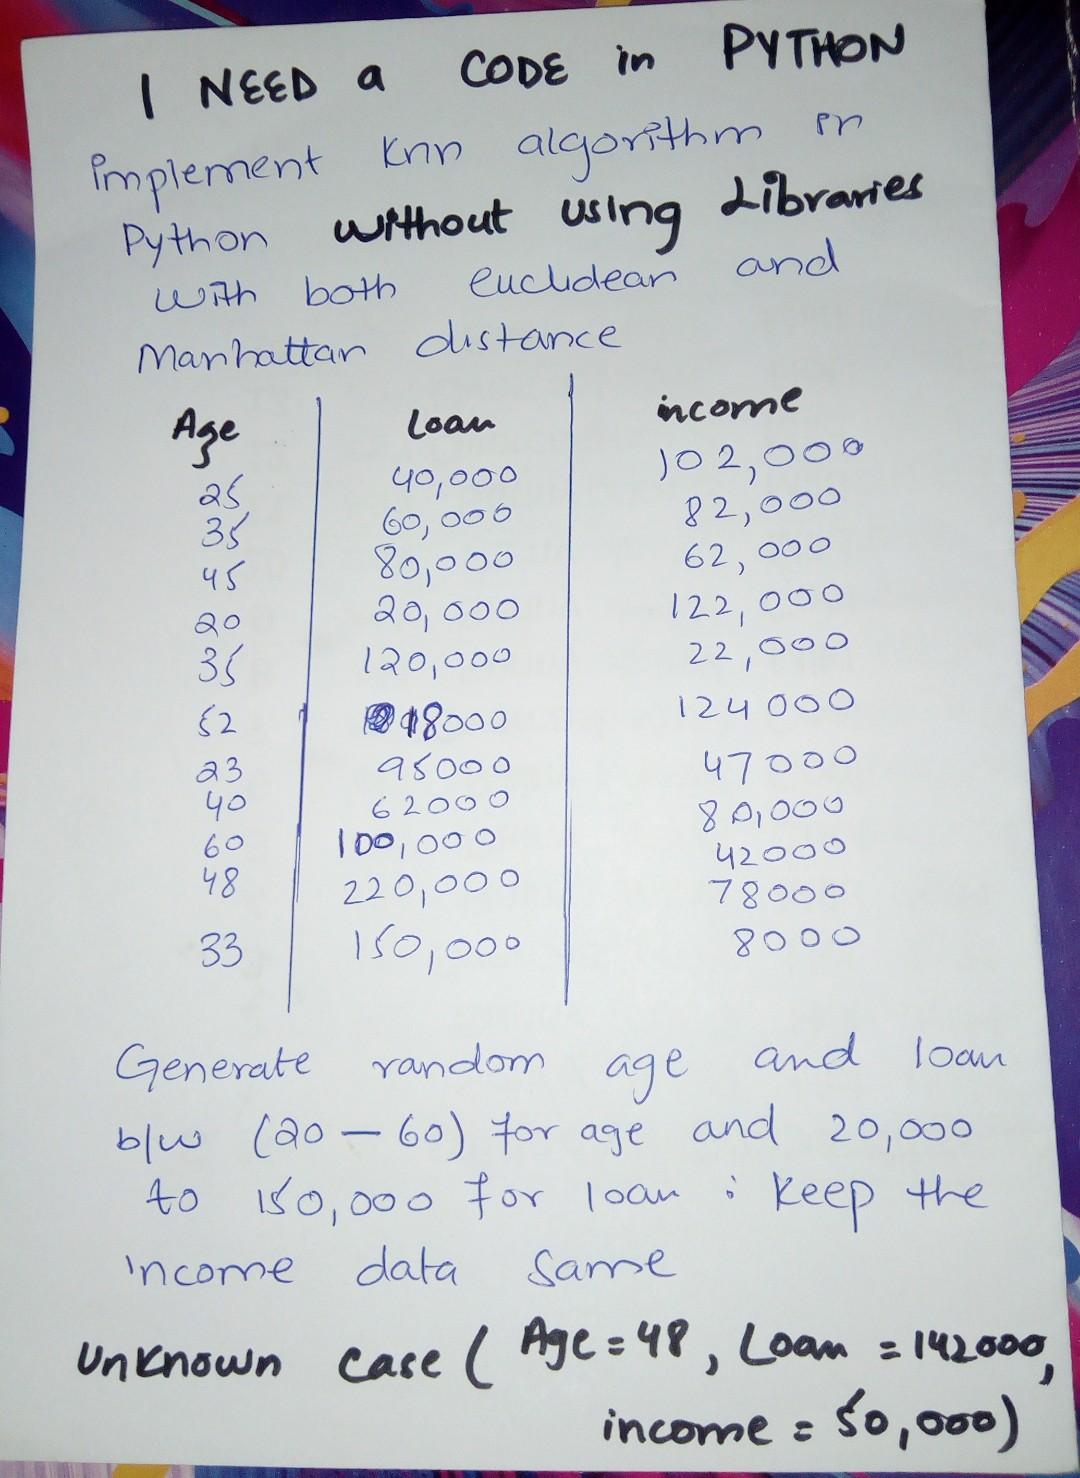 I NEED a CODE in PYTHON
implement Knn algorithm in
Python without using Libraries
with both euclidean and
Manhattan distance
Age Loan income
25 40,000 102,000
35 60,000 82,000
45 80,000 62,000
20 20,000 122,000
35 120,000 22,000
52 18000 124000
23 95000 47000
40 62000 80,000
60 100,000 42000
48 220,000 78000
33 150,000 8000
Generate random age and loan
b/w (20 - 60) for age and 20,000
to 150,000 for loan : Keep the
income data same
Unknown case ( Age = 48, Loan = 142000,
income = 50,000)